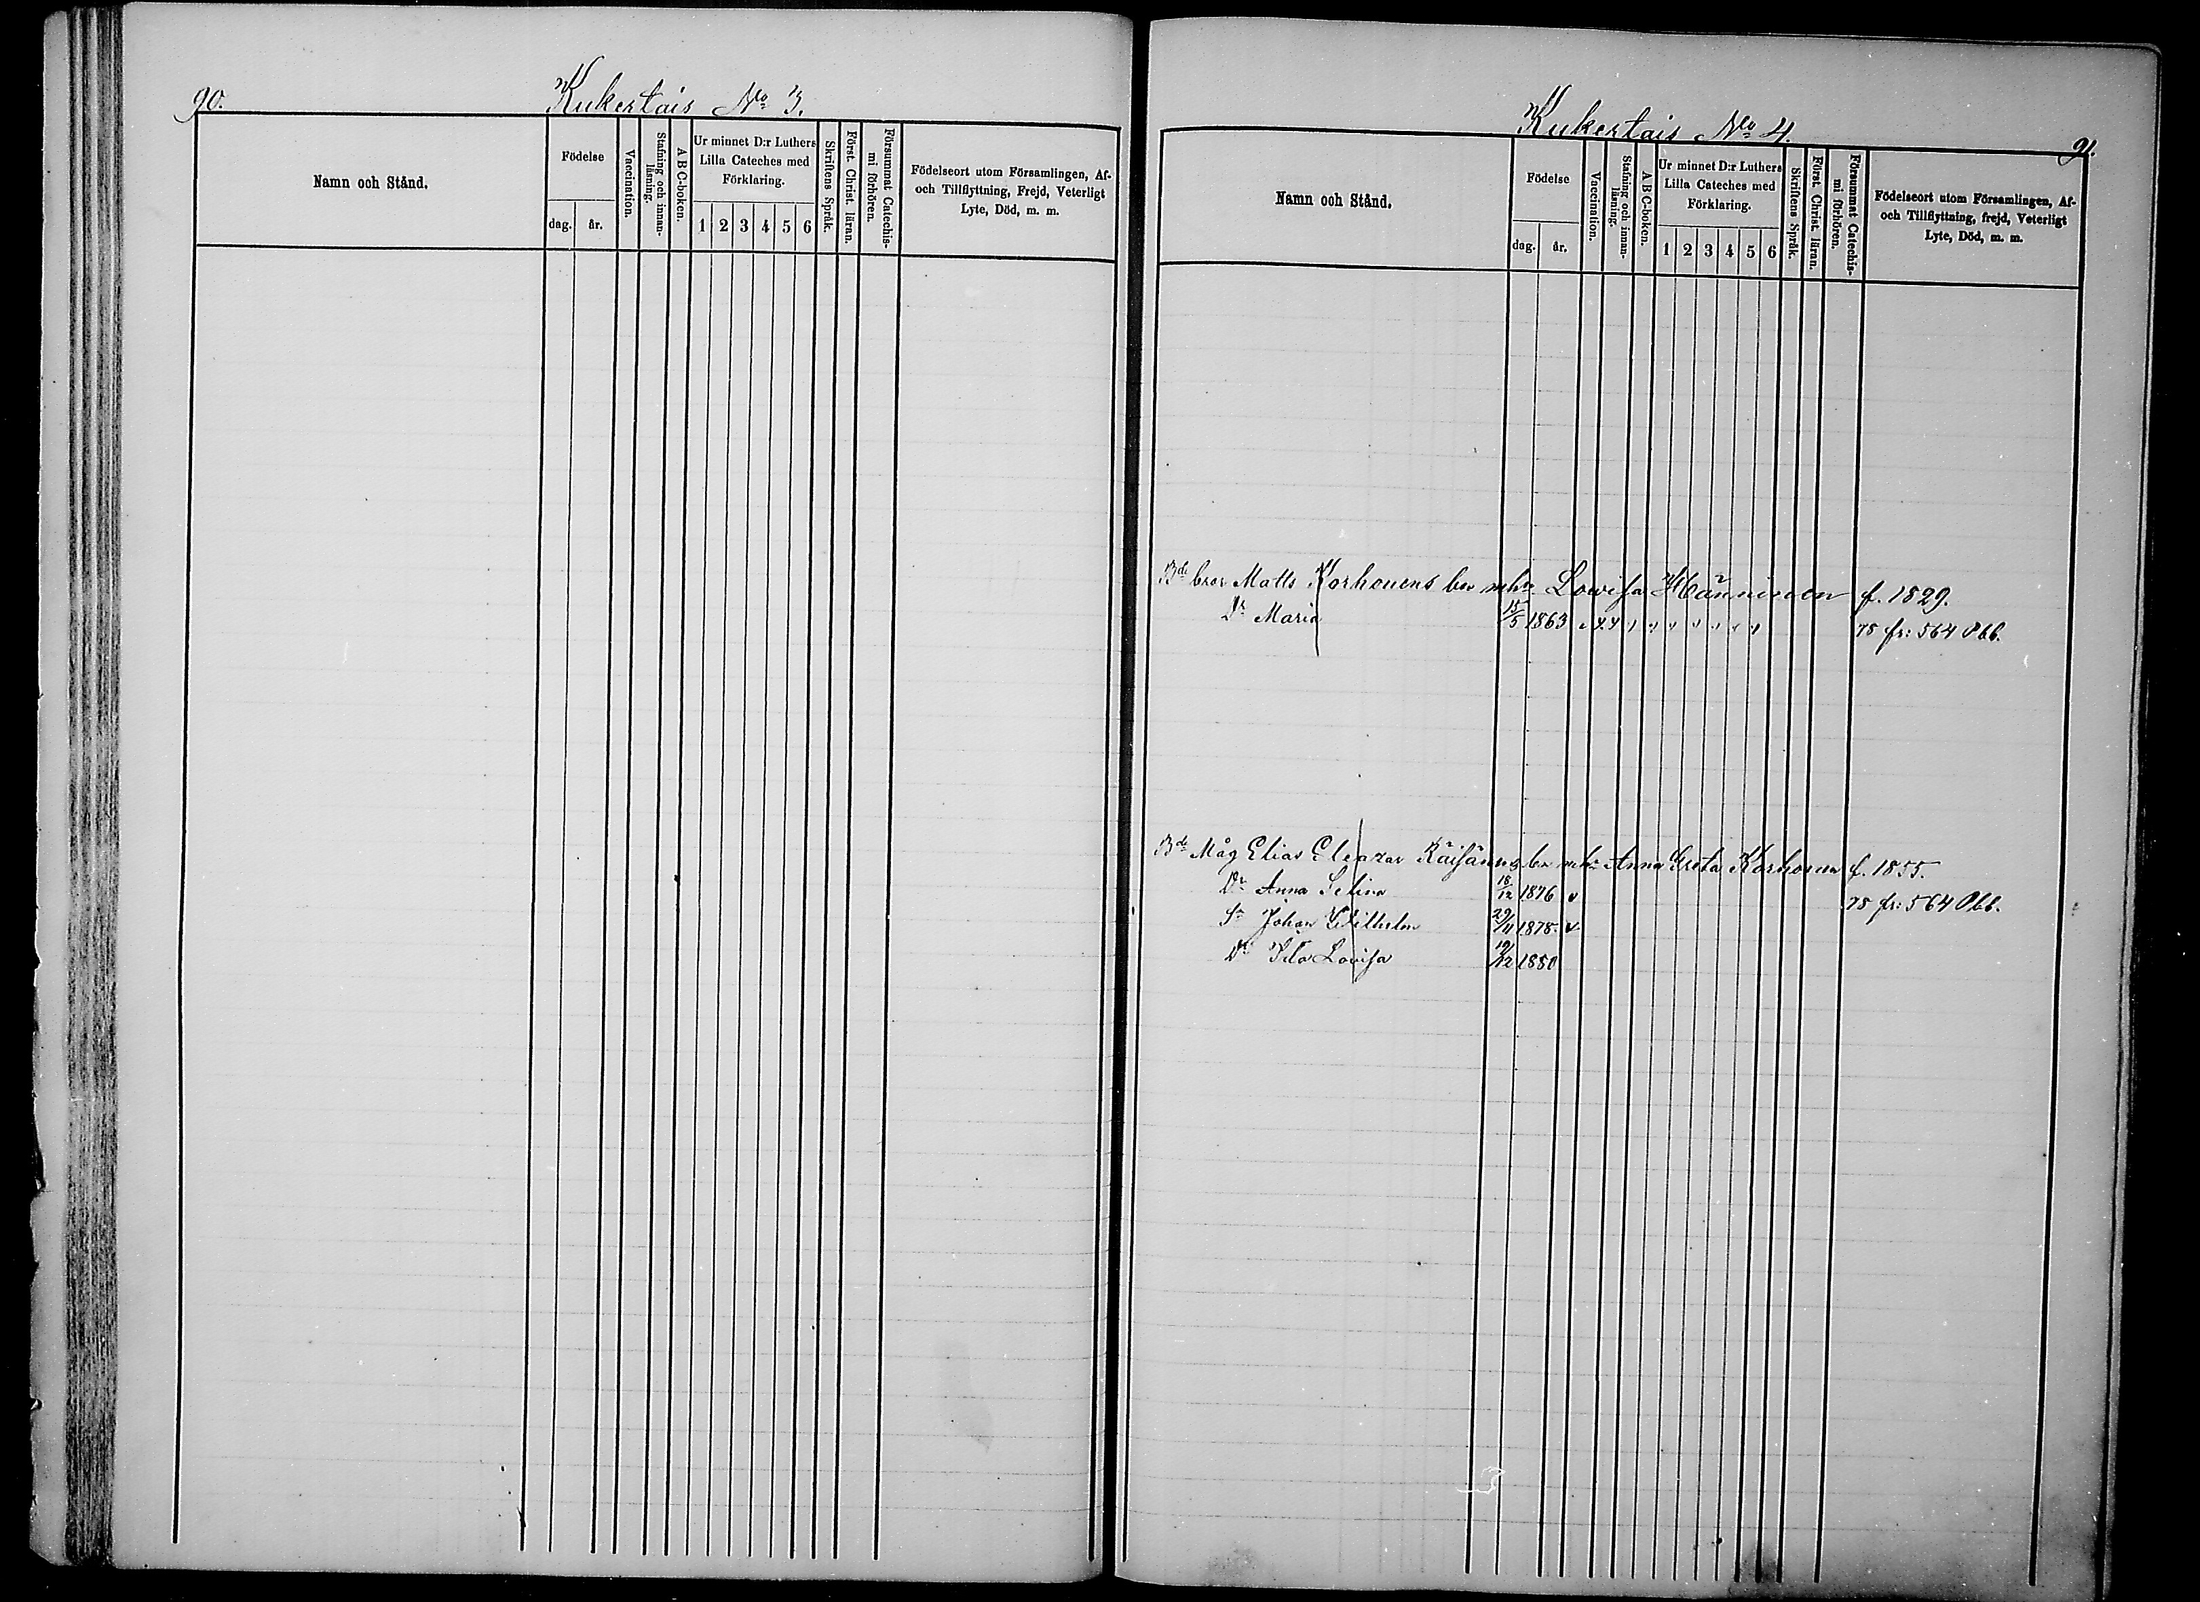 90.
Kukertais No 3.
Namn och Stånd.
Födelse
dag.
år.
Vaccination.
Stafning och innan-
läsning.
A B C-boken.
Ur minnet D:r Luthers
Lilla Cateches med
Förklaring.
1 2 3 4 5 6
Skriftens Språk.
Först. Christ. läran.
Försummat Catechis-
mi förhören.
Födelseort utom Församlingen, Af-
och Tillflyttning, Frejd, Veterligt
Lyte, Död, m. m.
Kukertais No 4.
91.
Namn och Stånd.
Födelse
dag.
år.
Vaccination.
Stafning och innan-
läsning.
A B C-boken.
Ur minnet D:r Luthers
Lilla Cateches med
Förklaring.
1 2 3 4 5 6
Skriftens Språk.
Först. Christ. läran.
Försummat Catechis-
mi förhören.
Födelseort utom Församlingen, Af-
och Tillflyttning, frejd, Veterligt
Lyte, Död, m. m.
Bde bror Matts Korhonens bm Lovisa Hänninen f. 1829.
Dr Maria 15/5 1863 78 fr: 564 Obb.
Bde Måg Elias Eleazar Räisänens Anna Greta Korhonen f. 1855.
Dr Anna Selina 18/12 1876 v 78 fr: 564 Obb.
Sn Johan Wilhelm 29/11 1878. v
Dr Ida Lovisa 19/12 1880